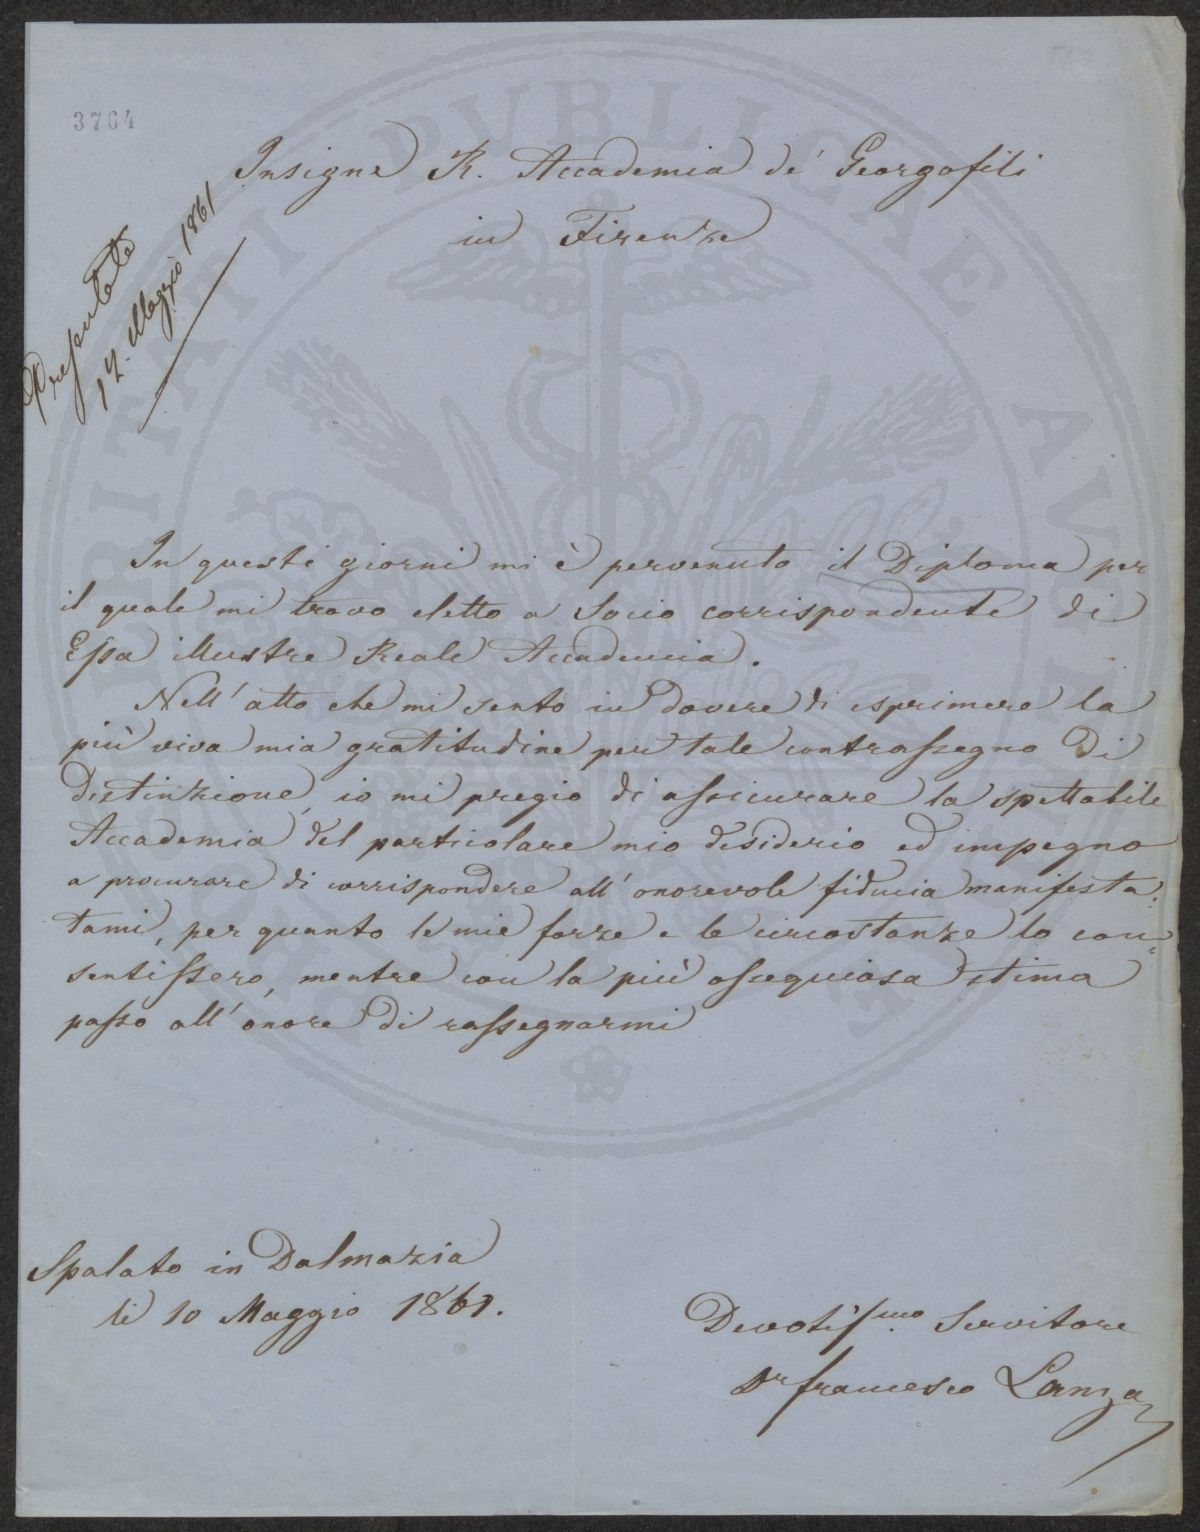 3764
Insigne R. Accademia de' Georgofili
in Firenze
Presentata
17. Maggio 1861
In questi giorni mi è pervenuto il Diploma per
il quale mi trovo eletto a Socio corrispondente di
Essa illustre Reale Accademia.
Nell' atto che mi sento in dovere di esprimere la
più viva mia gratitudine per tale contrassegno di
distinzione, io mi pregio di assicurare la spettabile
Accademia del particolare mio desiderio ed impegno
a procurare di corrispondere all' onorevole fiducia manifesta:
tami, per quanto le mie forze e le circostanze lo con=
sentissero, mentre con la più ossequiosa stima
passo all' onore di rassegnarmi
Spalato in Dalmazia
li 10 Maggio 1861.
Devotiss.mo Servitore
Dr Francesco Lanza
PROSPERITATI PUBLICAE AUGENDAE